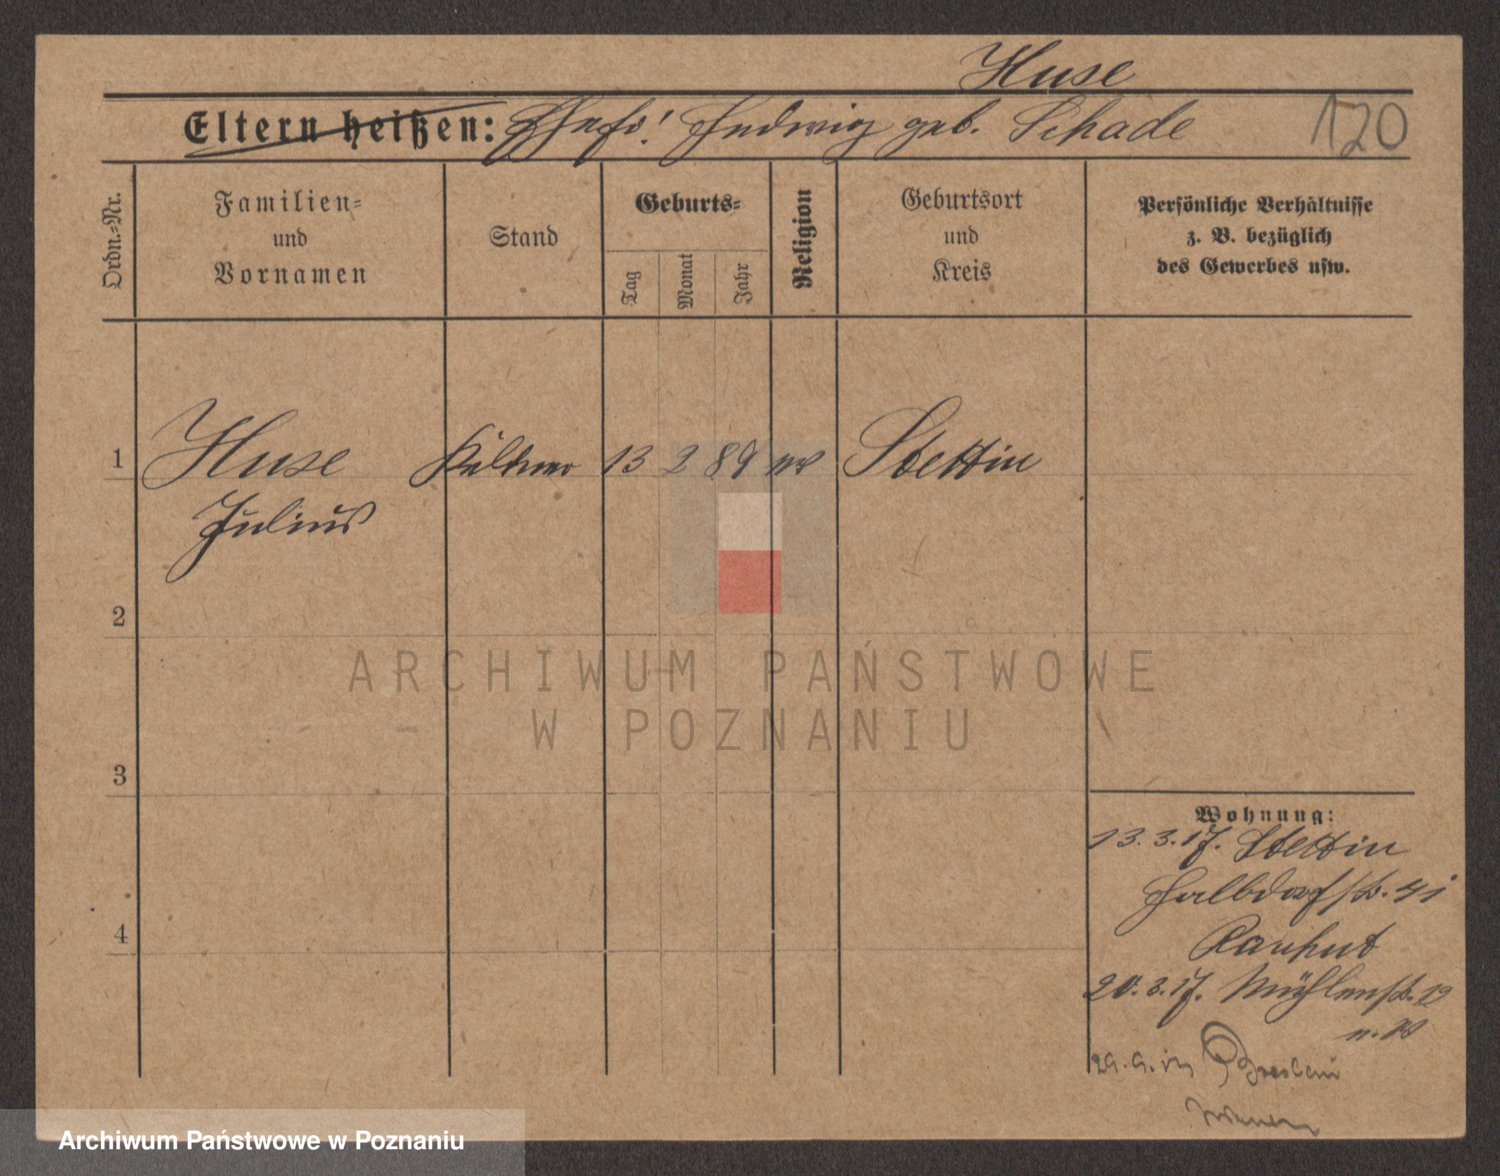 Huse
Eltern heißen: Ehefr: Hedwig geb. Schade
120
Ordn.-Nr.
Familien-
und
Vornamen
Stand
Geburts-
Tag
Monat
Jahr
Religion
Geburtsort
und
Kreis
Persönliche Verhältnisse
z. B. bezüglich
des Gewerbes usw.
1
Huse Kellner 13 2 89 ev Stettin
Julius
2
ARCHIWUM PAŃSTWOWE
W POZNANIU
3
Wohnung:
13.3.17. Stettin
Halbdorfstr. 41
Rauhut
4
20.3.17. Mühlenstr. 19
29.9.17 Breslau
Archiwum Państwowe w Poznaniu